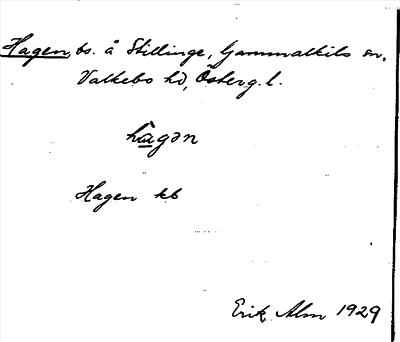 Hagen, bs. å Skillinge, Gammalkils sn,
Valkebo hd, Österg. l.
hagən
Hagen kb
Erik Alm 1929